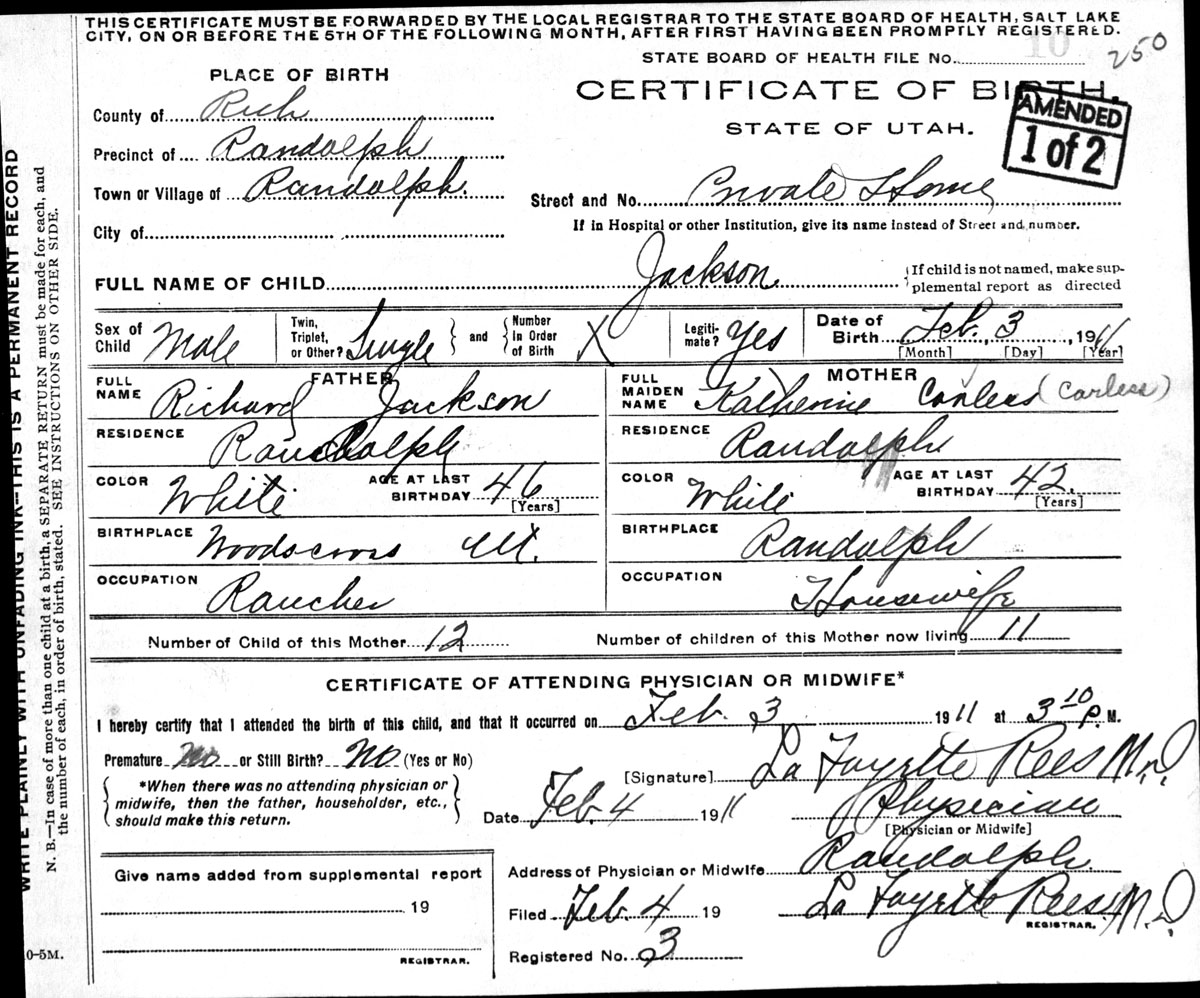 THIS CERTIFICATE MUST BE FORWARDED BY THE LOCAL REGISTRAR TO THE STATE BOARD OF HEALTH, SALT LAKE
CITY, ON OR BEFORE THE 5TH OF THE FOLLOWING MONTH, AFTER FIRST HAVING BEEN PROMPTLY REGISTERED.
STATE BOARD OF HEALTH FILE No. 10 250
PLACE OF BIRTH
CERTIFICATE OF BIRTH.
STATE OF UTAH.
AMENDED
1 of 2
County of Rich
Precinct of Randolph
Town or Village of Randolph.
City of
Street and No. Private Home
If in Hospital or other Institution, give its name instead of Street and number.
FULL NAME OF CHILD Jackson
If child is not named, make sup-
plemental report as directed
Sex of Child Male
Twin, Triplet, or Other? Single and Number In Order of Birth X
Legiti-mate? Yes
Date of Birth Feb. 3, 1911
[Month] [Day] [Year]
FATHER
FULL NAME Richard Jackson
RESIDENCE Randolph
COLOR White AGE AT LAST BIRTHDAY 46
[Years]
BIRTHPLACE Woodscross Ut.
OCCUPATION Rancher
MOTHER
FULL MAIDEN NAME Katherine Conless (Corless)
RESIDENCE Randolph
COLOR White AGE AT LAST BIRTHDAY 42.
[Years]
BIRTHPLACE Randolph
OCCUPATION Housewife
Number of Child of this Mother 12 Number of children of this Mother now living 11
CERTIFICATE OF ATTENDING PHYSICIAN OR MIDWIFE*
I hereby certify that I attended the birth of this child, and that it occurred on Feb. 3 1911 at 3 10 P. M.
Premature No or Still Birth? No (Yes or No)
*When there was no attending physician or
midwife, then the father, householder, etc.,
should make this return.
[Signature] La Fayette Rees M.D.
Date Feb. 4 1911 Physician
[Physician or Midwife]
Address of Physician or Midwife Randolph.
Filed Feb. 4 19 La Fayette Rees M.D.
REGISTRAR.
Registered No. 3
Give name added from supplemental report
19
REGISTRAR.
WRITE PLAINLY WITH UNFADING INK—THIS IS A PERMANENT RECORD
N. B.—In case of more than one child at a birth, a SEPARATE RETURN must be made for each, and
the number of each, in order of birth, stated. SEE INSTRUCTIONS ON OTHER SIDE.
0-5M.